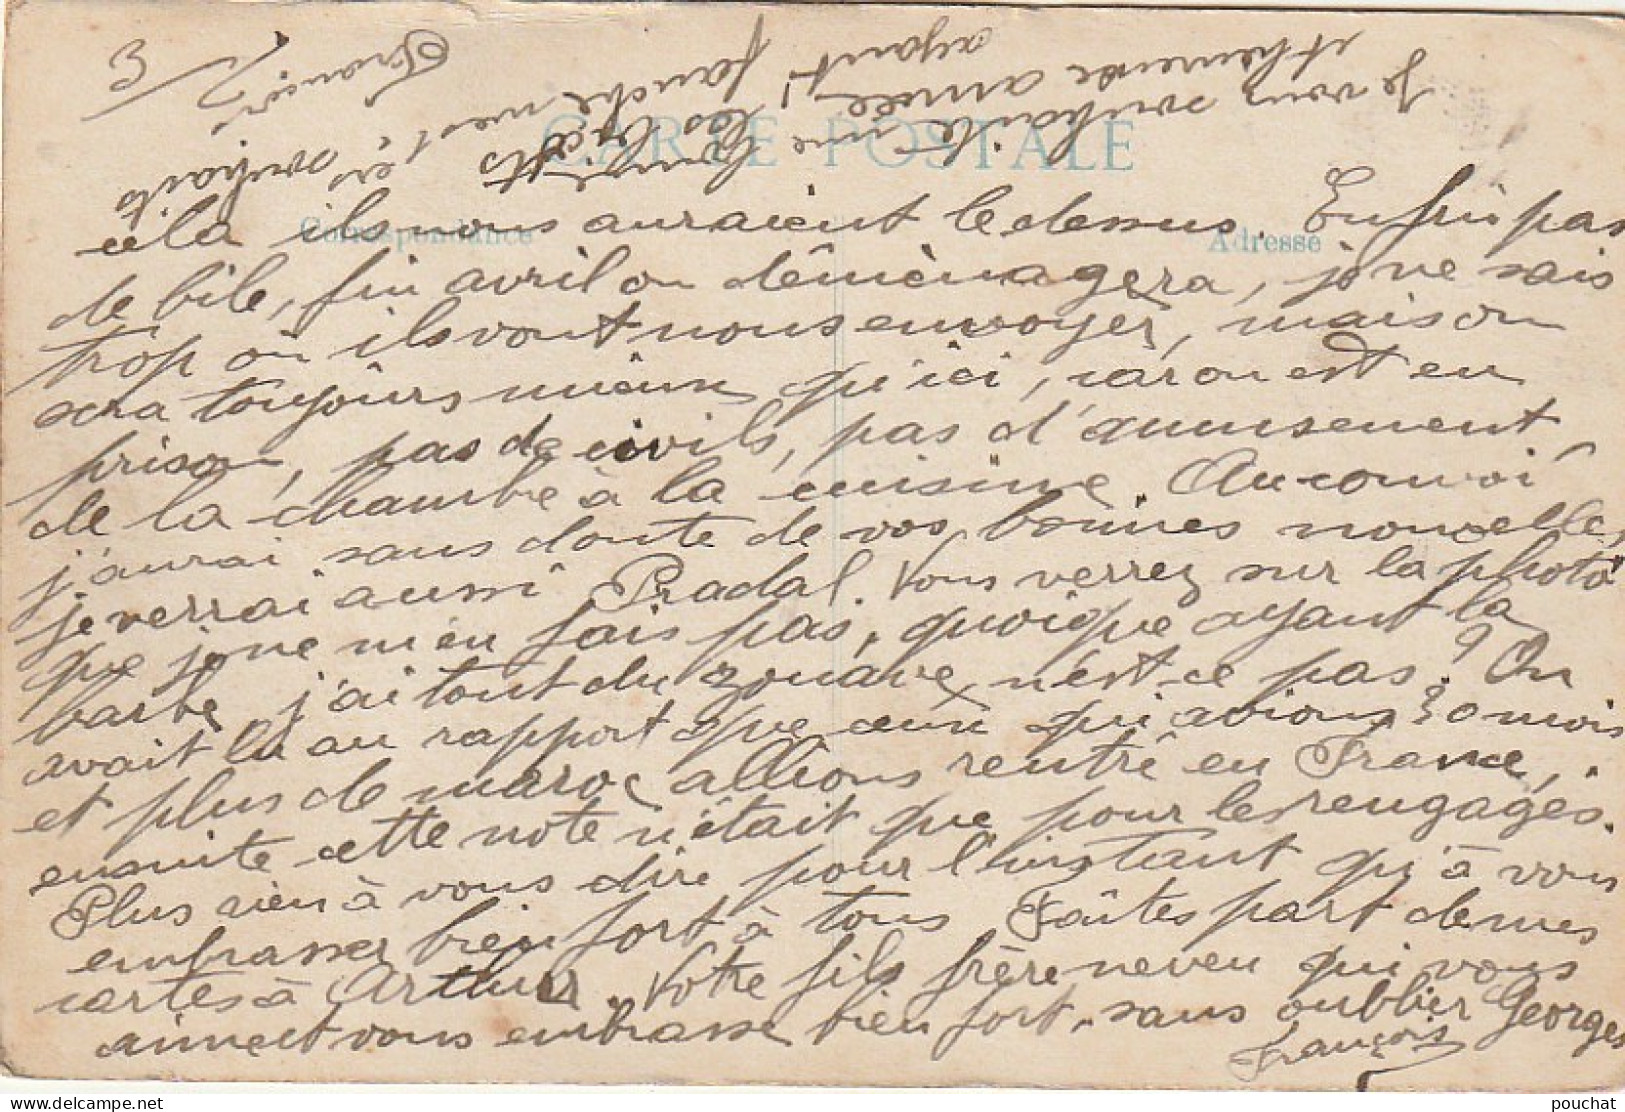 CARTE POSTALE
Correspondance
Adresse
Je vous souhaite une bonne
et heureuse année,
ayant
François
3
cela ils vous auraient le dessus. Enfin pas
de bile, fin avril on déménagera, je ne sais
trop où ils vont nous envoyer, mais on
sera toujours mieux qu'ici, car on est en
prison, pas de civils, pas d'amusement,
de la chambre à la cuisine. Au convoi
j'aurai sans doute de vos bonnes nouvelles,
je verrai aussi Pradal. Vous verrez sur la photo
que je ne m'en fais pas, quoique ayant la
barbe, j'ai tout du zouave, n'est-ce pas? On
avait lu au rapport que ceux qui avions 30 mois
et plus de maroc allions rentré en France,
ensuite cette note n'était que pour les rengagés.
Plus rien à vous dire pour l'instant qu'à vous
embrasser bien fort à tous Faîtes part de mes
cartes à Arthur. Votre fils frère neveu qui vous
aime et vous embrasse bien fort, sans oublier Georges
François
pouchat